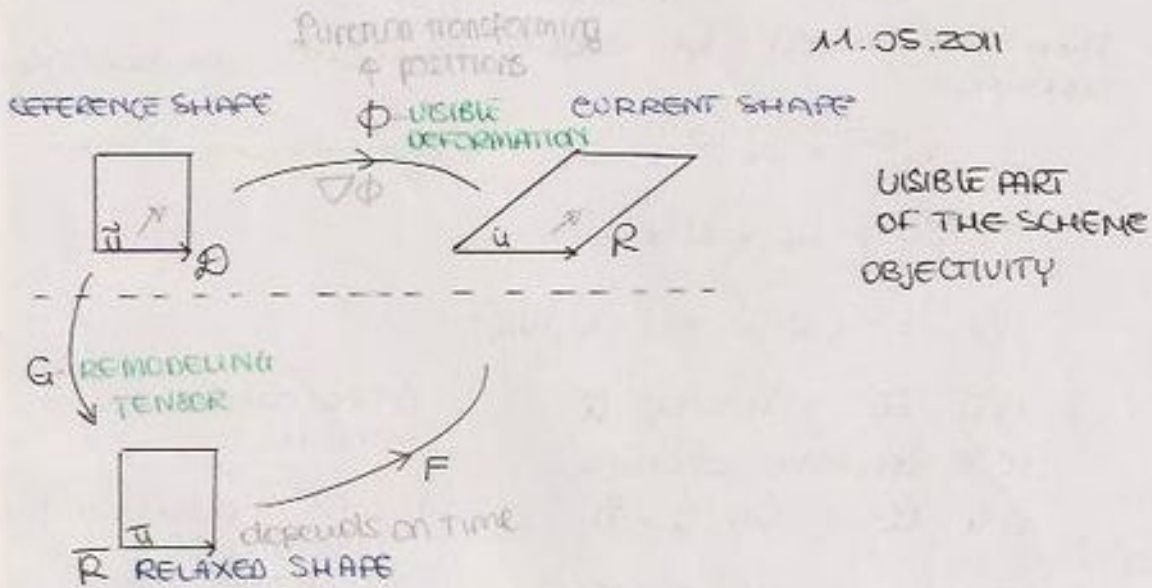 11.05.2011
Function transforming
4 positions
REFERENCE SHAPE
Φ VISIBLE
DEFORMATION
CURRENT SHAPE
∇Φ
VISIBLE PART
OF THE SCHEME
OBJECTIVITY
ũ
D
u
R
G REMODELING
TENSOR
F
depends on time
ū
R̅ RELAXED SHAPE